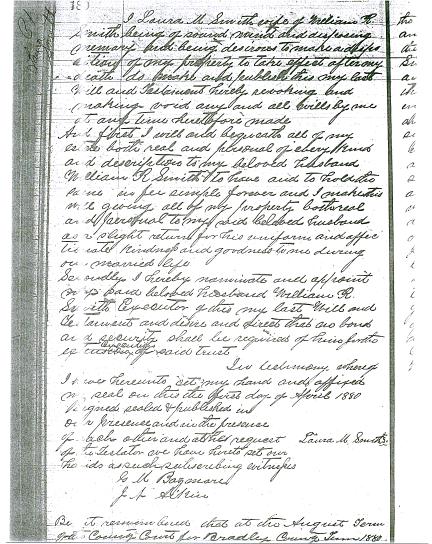 I Laura M Smith wife of William R.
Smith being of sound mind and disposing
memory and being desirous to make a dispo
sition of my property to take effect after my
do make and publish this my last
Will and Testament hereby revoking and
making void any and all wills by me
at any time heretofore made
And first I will and bequeath all of my
both real and personal of every kind
and description to my beloved husband
William R Smith to have and to hold the
same in fee simple forever and I make this
will giving all of my property both real
and personal to my said beloved husband
as a slight return for his uniform and affec
tionate kindness and goodness to me during
our married life
Secondly I hereby nominate and appoint
my said beloved husband William R.
Smith Executor of this my last Will and
Testament and desire and direct that no bond
and security shall be required of him for the
execution of said trust
In testimony whereof
I have hereunto set my hand and affixed
my seal on this the first day of April 1880
Signed sealed & published in
our presence and in the presence
of each other and at his request Laura M Smith
of the testator we have hereto set our
hands as such subscribing witness
G M Bazemore
Be it remembered that at the August Term
County Court for Bradley County Tenn 1880